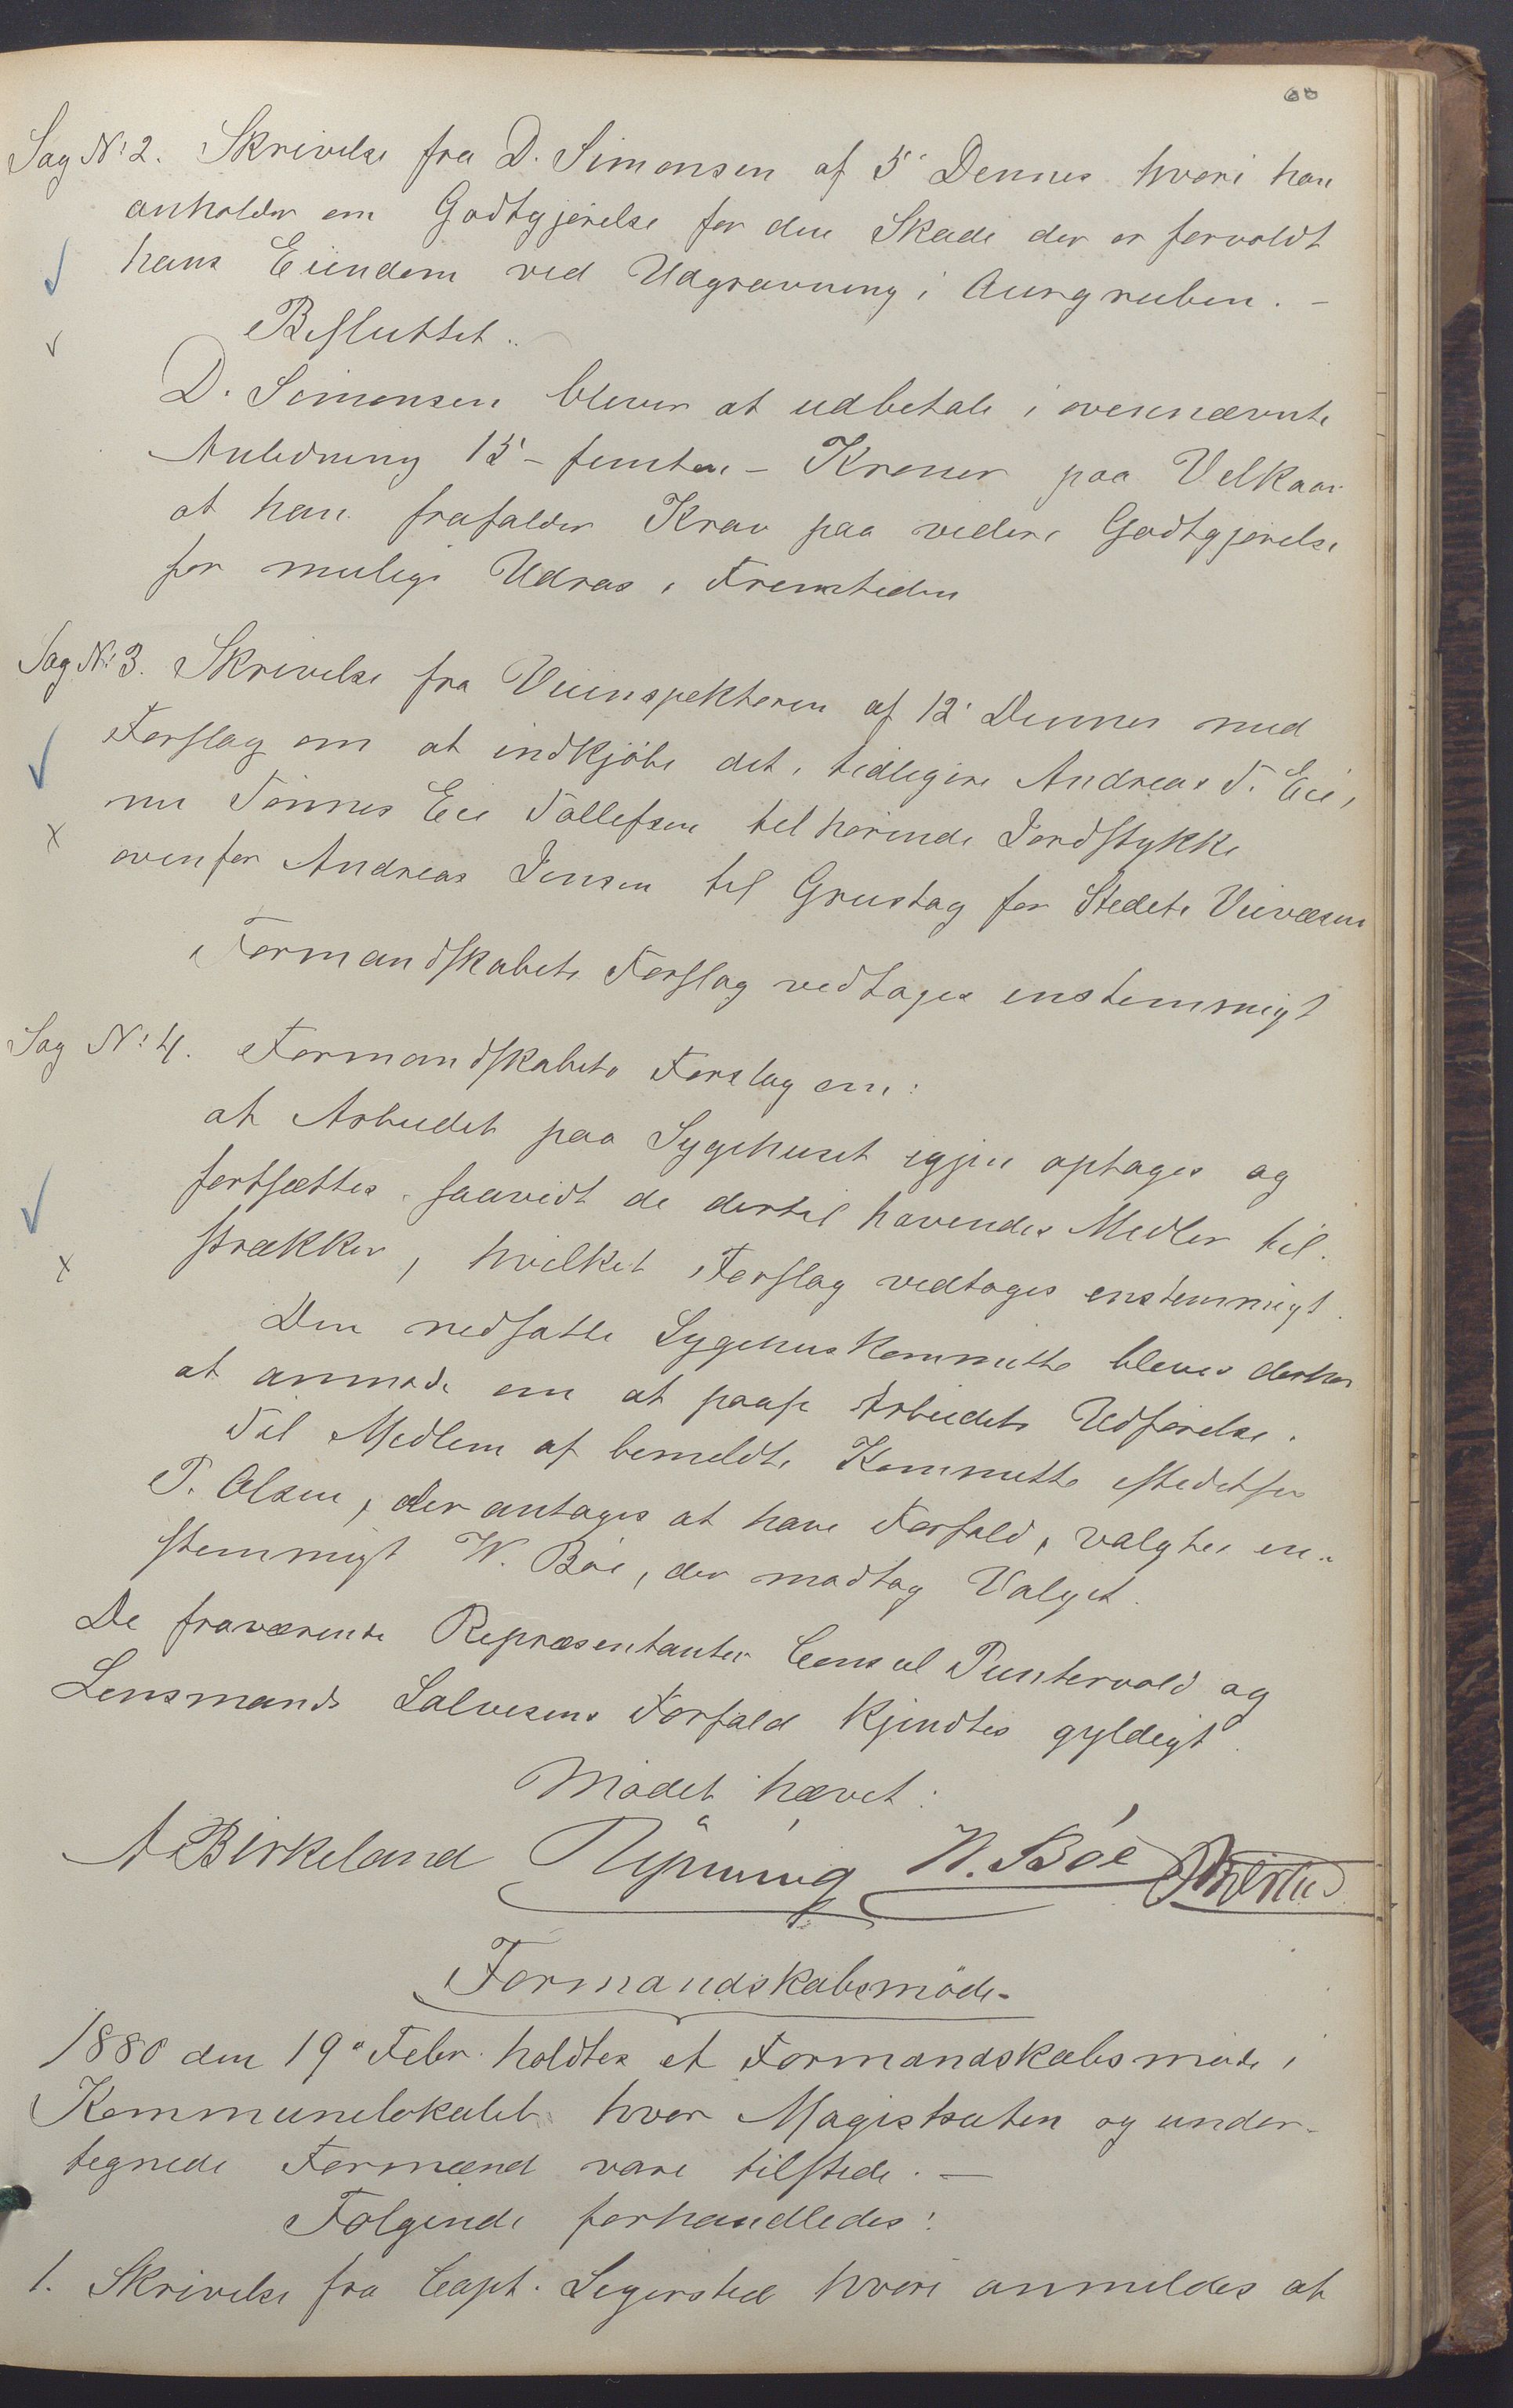 60
Sag N: 2. Skrivelse fra D. Simonsen af 5' Dennes hvori han
anholder om Godtgjörelse for den Skade der er forvoldt
hans Eiendom ved Udgravning i Aurgruben. –
Besluttet.
D. Simonsen bliver at udbetale i ovennævnte
Anledning 15 – femten – Kroner paa Velkaar
at han frafalder Krav paa videre Godtgjörelse
for mulige Udras i Fremtiden
Sag N: 3. Skrivelse fra Veiinspektören af 12' Dennes med
Forslag om at indkjöbe det, tidligere Andreas T. Eie,
nu Tönnes Eie Tollefsen tilhörende Jordstykke
ovenfor Andreas Jensen til Grustag for Stedets Veivæsen
Formandskabets Forslag vedtages enstemmigt
Sag N: 4. Formandskabets Forslag om:
at Arbeidet paa Sygehuset igjen optages og
fortsættes saavidt de dertil havendes Midler til.
strækker, hvilket Forslag vedtoges enstemmigt.
Den nedsatte Sygehus Kommitte bleves derhos
at anmode om at paase Arbeidets Udförelse.
Til Medlem af bemeldte Kommitte istedetfor
P. Olsen, der antages at have Forfald, valgtes en-
stemmigt W. Böe, der modtog Valget.
De fraværende Repræsentanter Consul Puntervold og
Lensmand Salvesens Forfald kjendtes gyldigt.
Mödet hævet:
A Birkeland W. Böe
Formandskabsmöde
1880 den 19' Febr. holdtes et Formandskabsmöde i
Kommunelokalet hvor Magistraten og under-
tegnede Formænd vare tilstede. –
Folgende forhandledes:
1. Skrivelse fra Capt. Segersted hvori anmeldes at